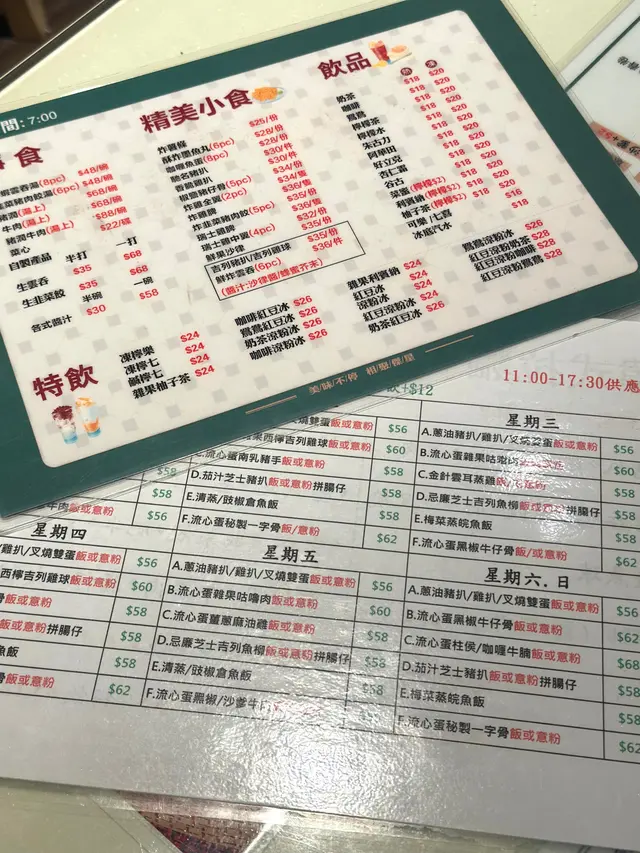 間: 7:00
食
蝦雲吞湯(8pc) $48/碗
韮菜豬肉餃湯(6pc) $48/碗
豬潤(湯上) $68/碗
牛肉(湯上) $68/碗
豬潤牛肉(湯上) $88/碗
菜心 $22/碟
自製產品 半打 一打
生雲吞 $35 $68
生韮菜餃 $35 $68
半碗 一碗
各式醬汁 $30 $58
精美小食
炸薯條 $25/份
酥炸墨魚丸(6pc) $28/份
咖喱魚蛋(8pc) $28/份
脆香豬扒 $30/件
香脆雞扒 $34/件
椒鹽豬仔骨(5pc) $30/份
炸雞全翼(2pc) $34/隻
炸雞脾 $36/隻
炸韮菜豬肉餃(5pc) $35/份
瑞士雞脾 $36/隻
瑞士雞中翼(4pc) $32/份
鮮果沙律 $35/份
吉列豬扒/吉列雞球 $35/份
鮮炸雲吞(6pc) $36/件
(醬汁:沙律醬/蜂蜜芥末)
飲品
熱 凍
奶茶 $18 $20
咖啡 $18 $20
鴛鴦 $18 $20
檸檬茶 $18 $20
檸檬水 $18 $20
朱古力 $18 $20
阿華田 $18 $20
好立克 $18 $20
杏仁霜 $18 $20
谷古 $18 $20
菜蜜(檸檬$2) $18 $20
利賓納(檸檬$2) $18 $20
柚子茶(檸檬$2) $18 $20
可樂/七喜 $16
冰底汽水 $18
特飲
凍檸樂 $24
凍檸七 $24
鹹檸七 $24
雜果柚子茶 $24
咖啡紅豆冰 $26
鴛鴦紅豆冰 $26
奶茶涼粉冰 $26
咖啡涼粉冰 $26
雜果利賓納 $24
紅豆冰 $24
涼粉冰 $24
紅豆涼粉冰 $26
奶茶紅豆冰 $26
鴛鴦涼粉冰 $26
紅豆涼粉奶茶 $28
紅豆涼粉咖啡 $28
紅豆涼粉鴛鴦 $28
美味/不停 相聚/傑星
飲+$12
11:00-17:30供應
$58
$58
牛肉飯或意粉 $56
燒雙蛋飯或意粉 $56
果西檸吉列雞球飯或意粉 $60
C.流心蛋南乳豬手飯或意粉 $58
D.茄汁芝士豬扒飯或意粉拼腸仔 $58
E.清蒸/豉椒倉魚飯 $58
F.流心蛋秘製一字骨飯/意粉 $62
星期三
A.蔥油豬扒/雞扒/叉燒雙蛋飯或意粉 $56
B.流心蛋雜果咕嚕肉飯或意粉 $60
C.金針雲耳蒸雞飯/或意粉 $58
D.忌廉芝士吉列魚柳飯或意粉拼腸仔 $58
E.梅菜蒸皖魚飯 $58
F.流心蛋黑椒牛仔骨飯/或意粉 $62
星期四
/雞扒/叉燒雙蛋飯或意粉 $56
西檸吉列雞球飯或意粉 $60
骨飯或意粉 $58
飯或意粉拼腸仔 $58
魚飯 $58
骨飯或意粉 $62
星期五
A.蔥油豬扒/雞扒/叉燒雙蛋飯或意粉 $56
B.流心蛋雜果咕嚕肉飯或意粉 $60
C.流心蛋薑蔥麻油雞飯或意粉 $58
D.忌廉芝士吉列魚柳飯或意粉拼腸仔 $58
E.清蒸/豉椒倉魚飯 $58
F.流心蛋黑椒/沙爹牛
星期六.日
A.蔥油豬扒/雞扒/叉燒雙蛋飯或意粉 $56
B.流心蛋黑椒牛仔骨飯或意粉 $62
C.流心蛋柱侯/咖喱牛腩飯或意粉 $68
D.茄汁芝士豬扒飯或意粉拼腸仔 $58
E.梅菜蒸皖魚飯 $58
F.流心蛋秘製一字骨飯或意粉 $62